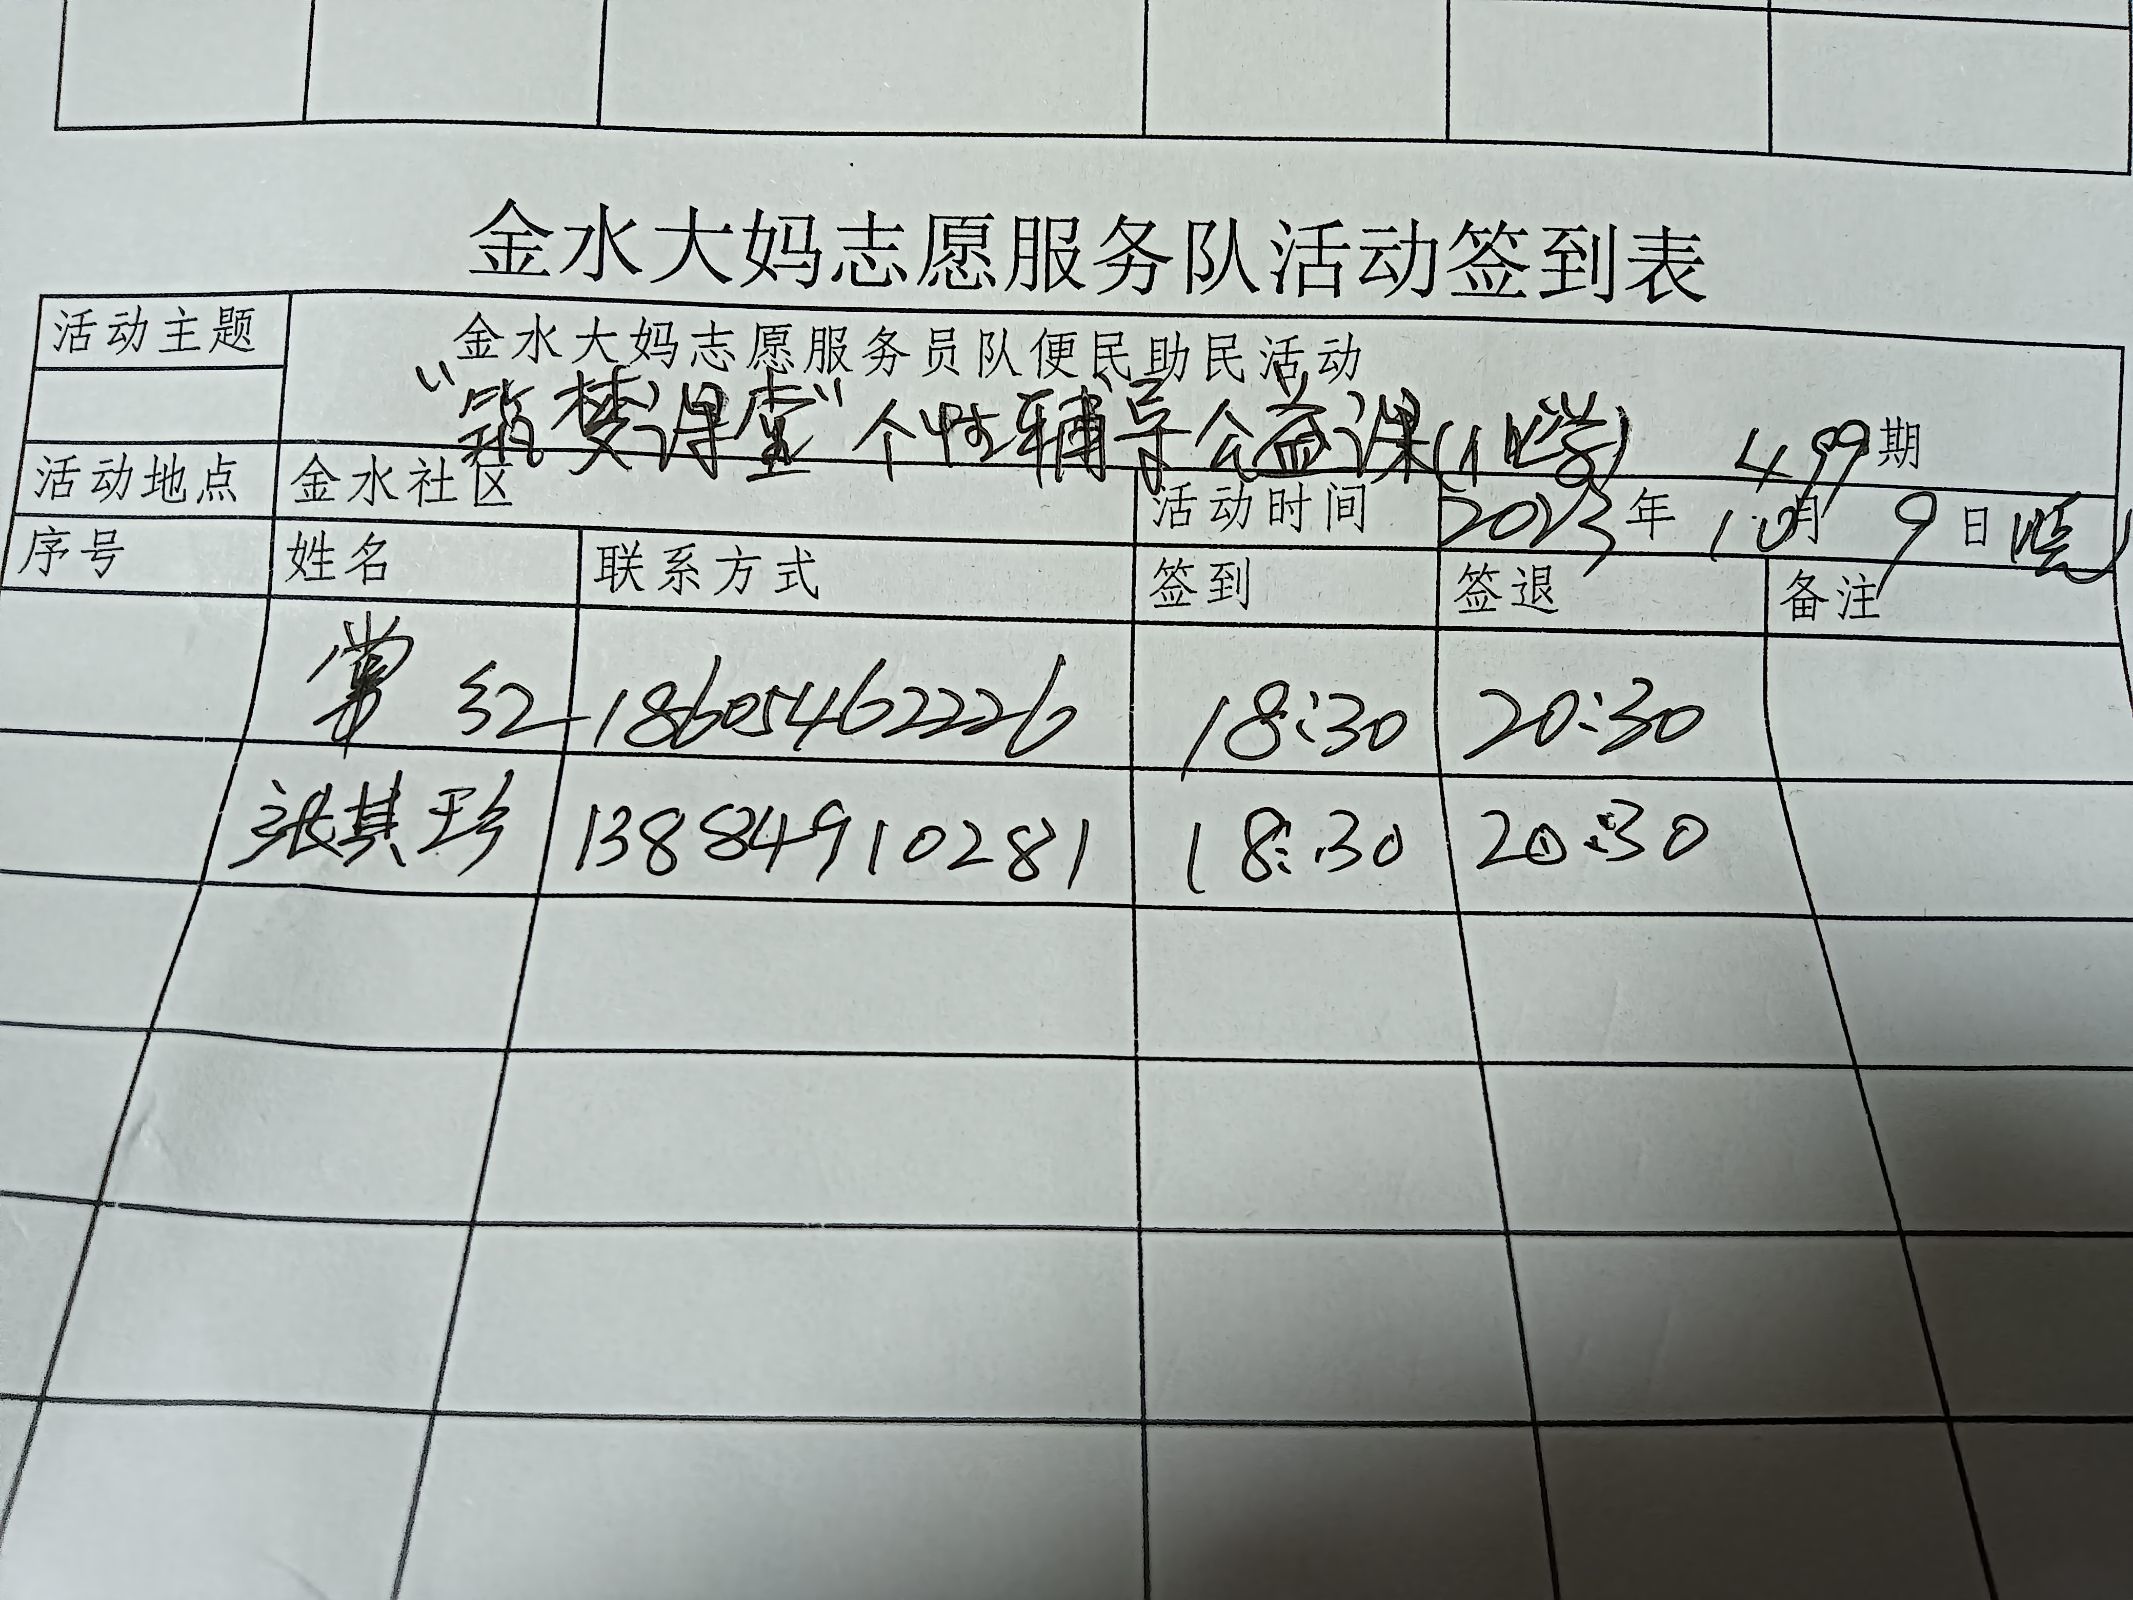 金水大妈志愿服务队活动签到表
活动主题 金水大妈志愿服务员队便民助民活动
"筑梦课堂"个性辅导公益课(小学) 499期
活动地点 金水社区 活动时间 2023年10月9日晚
序号 姓名 联系方式 签到 签退 备注
常红 18605462226 18:30 20:30
张其珍 13884910281 18:30 20:30